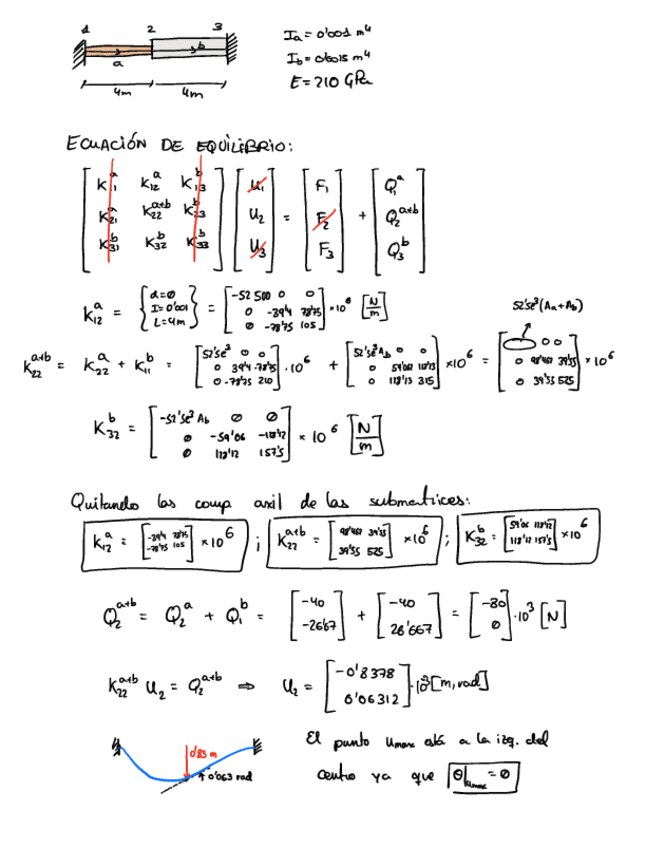 1 2 3
a b
4m 4m
Ia = 0'001 m⁴
Ib = 0'0015 m⁴
E = 210 GPa
ECUACIÓN DE EQUILIBRIO:
[K₁₁ᵃ K₁₂ᵃ K₁₃ᵇ] [U₁] = [F₁] + [Q₁ᵃ]
[K₂₁ᵃ K₂₂ᵃ⁺ᵇ K₂₃ᵇ] [U₂] [F₂] [Q₂ᵃ⁺ᵇ]
[K₃₁ᵇ K₃₂ᵇ K₃₃ᵇ] [U₃] [F₃] [Q₃ᵇ]
K₁₂ᵃ = {α=0 I=0'001 L=4m} = [-52 500 0 0; 0 -39'4 78'75; 0 -78'75 105] ×10⁶ [N/m]
52'5e³(Aa+Ab)
K₂₂ᵃ⁺ᵇ = K₂₂ᵃ + K₁₁ᵇ = [52'5e³ 0 0; 0 39'4 -78'75; 0 -78'75 210] ·10⁶ + [52'5e³Ab 0 0; 0 59'062 118'13; 0 118'13 315] ×10⁶ = [0 0; 0 98'462 39'35; 0 39'35 525] ×10⁶
K₃₂ᵇ = [-52'5e³ Ab 0 0; 0 -59'06 -118'12; 0 118'12 157'5] × 10⁶ [N/m]
Quitando las comp. axil de las submatrices:
K₁₂ᵃ = [-39'4 78'75; -78'75 105] ×10⁶ ; K₂₂ᵃ⁺ᵇ = [98'462 39'35; 39'35 525] ×10⁶ ; K₃₂ᵇ = [59'06 118'12; 118'12 157'5] ×10⁶
Q₂ᵃ⁺ᵇ = Q₂ᵃ + Q₁ᵇ = [-40; -26'67] + [-40; 26'667] = [-80; 0] ·10³ [N]
K₂₂ᵃ⁺ᵇ U₂ = Q₂ᵃ⁺ᵇ ⇒ U₂ = [-0'8378; 0'06312] ·10⁻³ [m, rad]
0'83 m
0'063 rad
El punto umax está a la izq. del
centro ya que θ|umax = 0